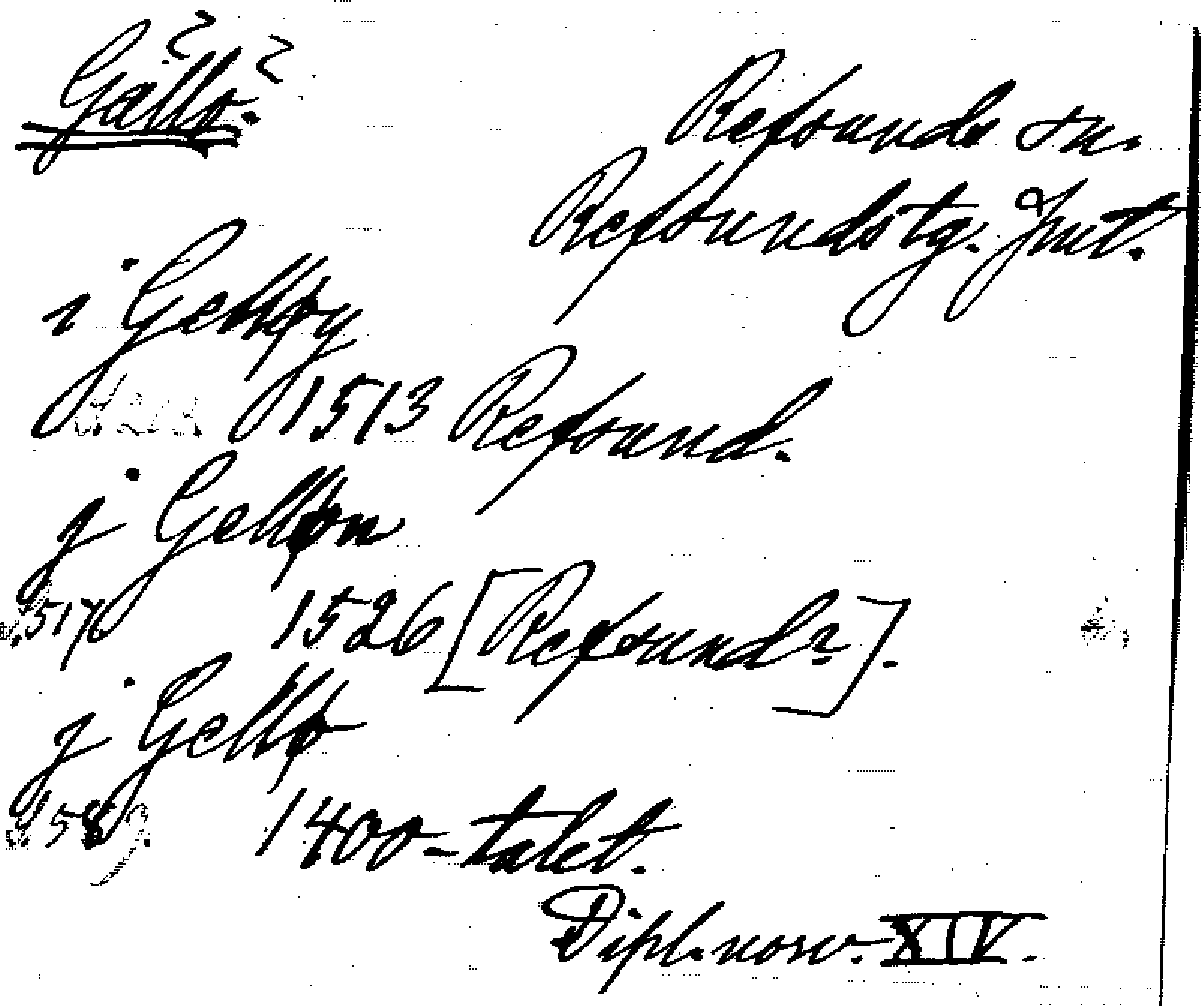 Gällö??
Refsunds sn.
Refsunds tg. Jmt.
i Gelløy
1513 Refsund.
j Gelløn
s. 517 1526 [Refsund?].
j Gellø
1400-talet.
Dipl. norv. XIV.